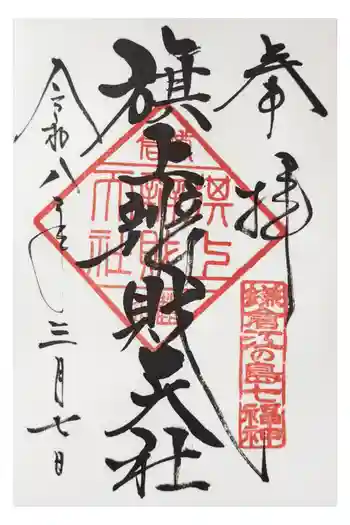 奉拝
鎌倉江の島七福神
旗上弁財天社
令和八年三月七日